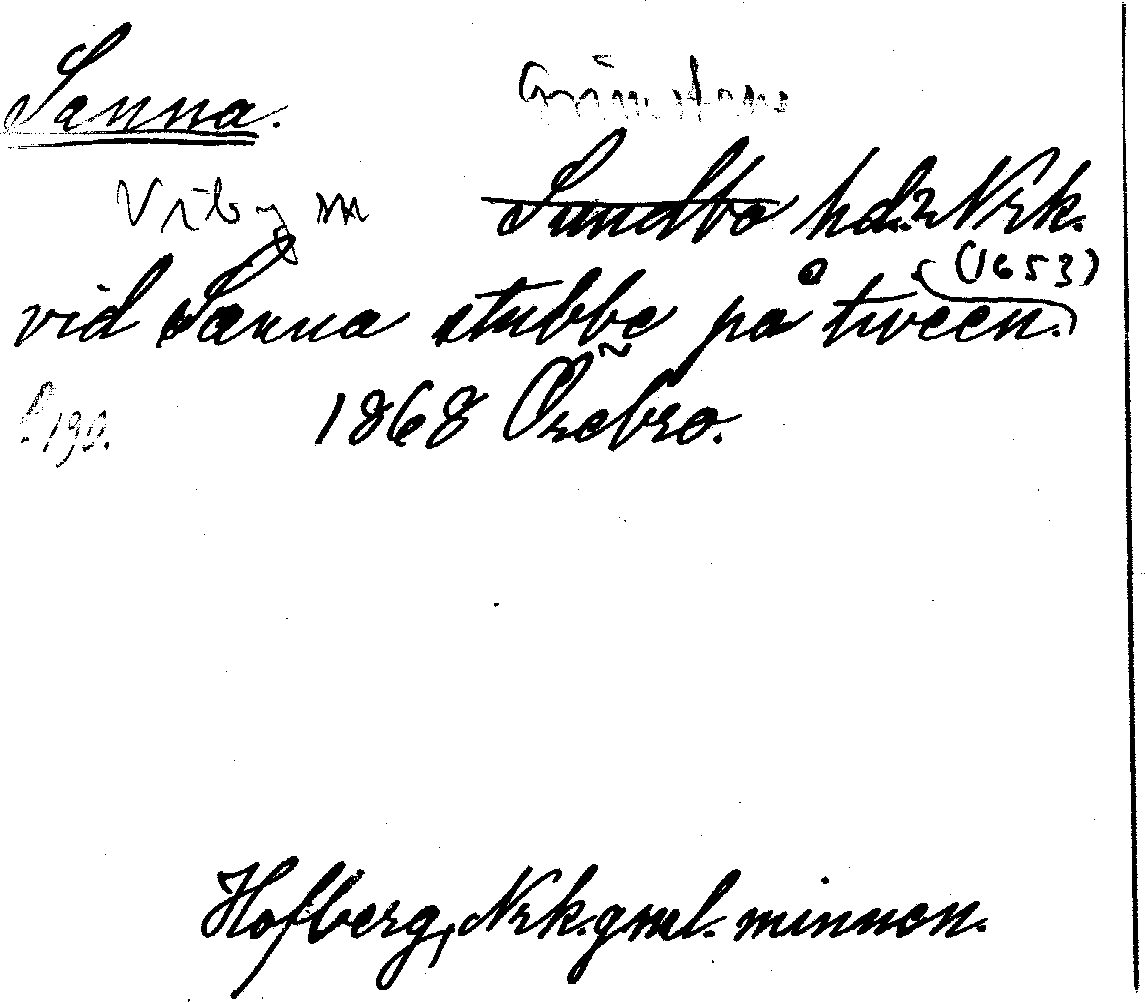 Sanna. Grimstens
Viby sn Sundbo hd. Nrk.
(1653)
vid Sanna stubbe på tween.
s. 190. 1868 Örebro.
Hofberg, Nrk. gml. minnen.